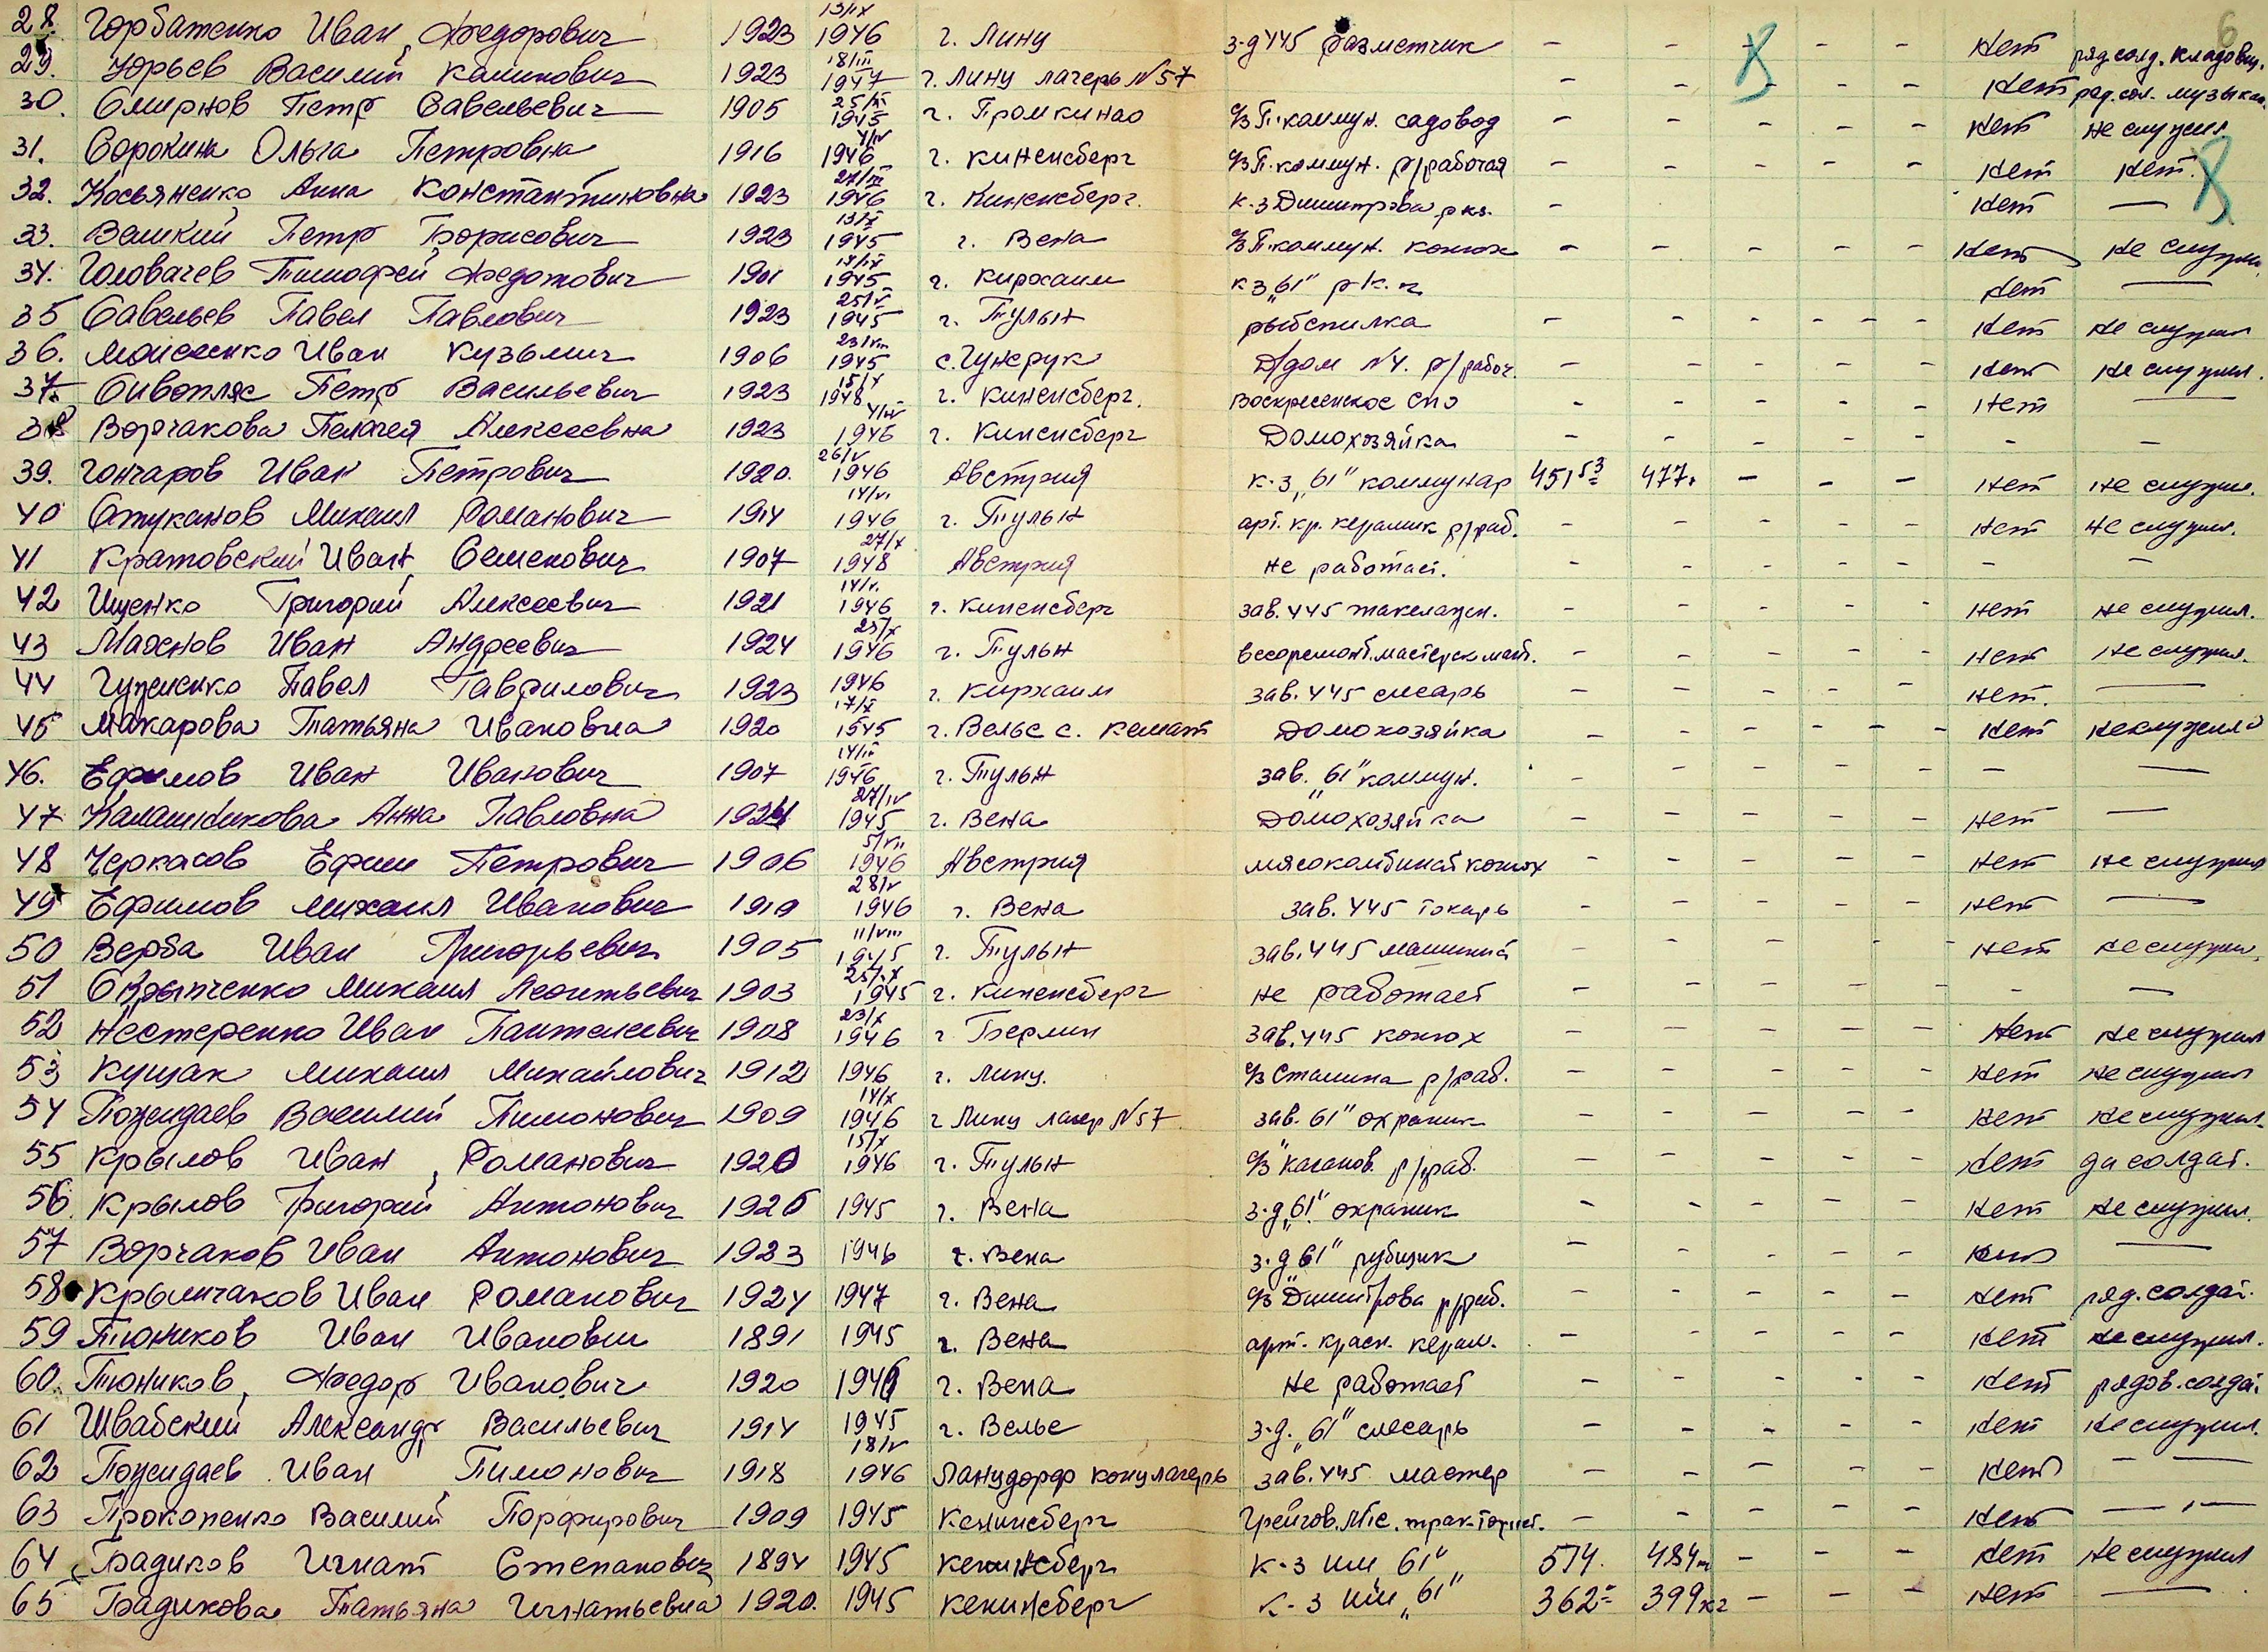 6
28. Горбатенко Иван Федорович 1923 13/IX 1946 г. Линц з-д 445 разметчик - - - - - нет ряд. солд. кладовщ.
29. Юрьев Василий Калинович 1923 18/III 1947 г. Линц лагерь №57 - - - - - нет ряд. сол. музыкан.
30. Смирнов Петр Савельевич 1905 25/XI 1945 г. Промкинао к/з П. коммун. садовод - - - - - нет не служил
31. Сорокина Ольга Петровна 1916 4/IV 1946 г. Киненсберг к/з П. коммун. р/рабочая - - - - - нет нет.
32. Касьяненко Анна Константиновна 1923 27/III 1946 г. Киненсберг. к-з Димитрова р кз. - нет —
33. Великий Петр Борисович 1923 13/X 1945 г. Вена к/з П. коммун. конюх - - - - - нет не служил
34. Головачев Тимофей Федотович 1901 18/IX 1945 г. Кирхаим к з „61" р к. к нет —
35 Савельев Павел Павлович 1923 25/V 1945 г. Тульн рыбспилка - - - - - - нет не служил
36. Моисеенко Иван Кузьмич 1906 23/VIII 1945 с. Гунсрук Д/дом №4. р/рабоч. - - - - - нет не служил.
37. Сивопляс Петр Васильевич 1923 15/X 1948 г. Киненсберг. Воскресенское спо - - - - - нет —
38 Ворчакова Пелагея Алексеевна 1923 4/IV 1946 г. Киненсберг Домохозяйка - - - - - - -
39. Гончаров Иван Петрович 1920. 26/V 1946 Австрия к-з „61" коммунар 451 53 477. - - - нет не служил.
40 Стуканов Михаил Романович 1914 14/VI 1946 г. Тульн арт. кр. керамик р/раб. - - - - - нет не служил.
41 Кратовский Иван Семенович 1907 27/X 1948 Австрия не работает. - - - - - - -
42 Ищенко Григорий Алексеевич 1921 14/V. 1946 г. Киненсберг зав. 445 такелажн. - - - - - нет не служил.
43 Махнов Иван Андреевич 1924 25/X 1946 г. Тульн весоремонт. мастерск маст. - - - - - нет не служил.
44 Гуженко Павел Гаврилович 1923 1946 г. Кирхаим зав. 445 слесарь - - - - - нет. —
45 Макарова Татьяна Ивановна 1920 17/X 1945 г. Вельс с. Кемат Домохозяйка - - - - - нет не служила
46. Ефимов Иван Иванович 1907 14/III 1946 г. Тульн зав. „61" коммун. - - - - - - —
47 Калашникова Анна Павловна 1924 27/IV 1945 г. Вена Домохозяйка - - - - - нет —
48 Черкасов Ефим Петрович 1906 5/VII 1946 Австрия мясокомбинат конюх - - - - - нет не служил
49 Ефимов Михаил Иванович 1919 28/V 1946 г. Вена зав. 445 токарь - - - - - нет —
50 Верба Иван Григорьевич 1905 11/VIII 1945 г. Тульн зав. 445 машинист - - - - - нет не служил.
51 Скрыпченко Михаил Леонтьевич 1903 25/IX 1945 г. Киненсберг не работает - - - - - - —
52 Нестеренко Иван Пантелеевич 1908 23/X 1946 г Берлин зав. 445 конюх - - - - - нет не служил
53 Кущак Михаил Михайлович 1912 1946 г. Линц. к/з Сталина р/раб. - - - - - нет не служил
54 Пожидаев Василий Тимонович 1909 14/X 1946 г Линц лагер №57 зав. 61" охраник - - - - - нет не служил.
55 Крылов Иван Романович 1920 15/X 1946 г. Тульн к/з Каганов. р/раб. - - - - - нет да солдат.
56. Крылов Григорий Антонович 1926 1945 г. Вена з-д „61" охраник - - - - - нет не служил.
57 Ворчаков Иван Антонович 1923 1946 г. Вена з-д „61" рубщик - - - - - нет —
58 Крымчаков Иван Романович 1924 1947 г. Вена к/з Димитрова р/раб. - - - - - нет ряд. солдат.
59 Тюников Иван Иванович 1891 1945 г. Вена арт. красн. керам. - - - - - нет не служил.
60. Тюников Федор Иванович 1920 1946 г. Вена не работает - - - - - нет рядов. солдат.
61 Швабский Александр Васильевич 1914 1945 г. Вельс з-д. „61" слесарь - - - - - нет не служил.
62 Пожидаев Иван Тимонович 1918 18/V 1946 Ланцдорф концлагерь зав. 445 мастер - - - - - нет - —
63 Прокопенко Василий Порфирович 1909 1945 Кенинсберг Грейгов. Мтс. тракторист. - - - - - нет — —
64 Бадиков Игнат Степанович 1894 1945 Кенинсберг к-з им „61" 574. 484 кг - - - нет не служил
65 Бадикова Татьяна Игнатьевна 1920. 1945 Кенинсберг к-з им „61" 362= 399 кг - - - нет —